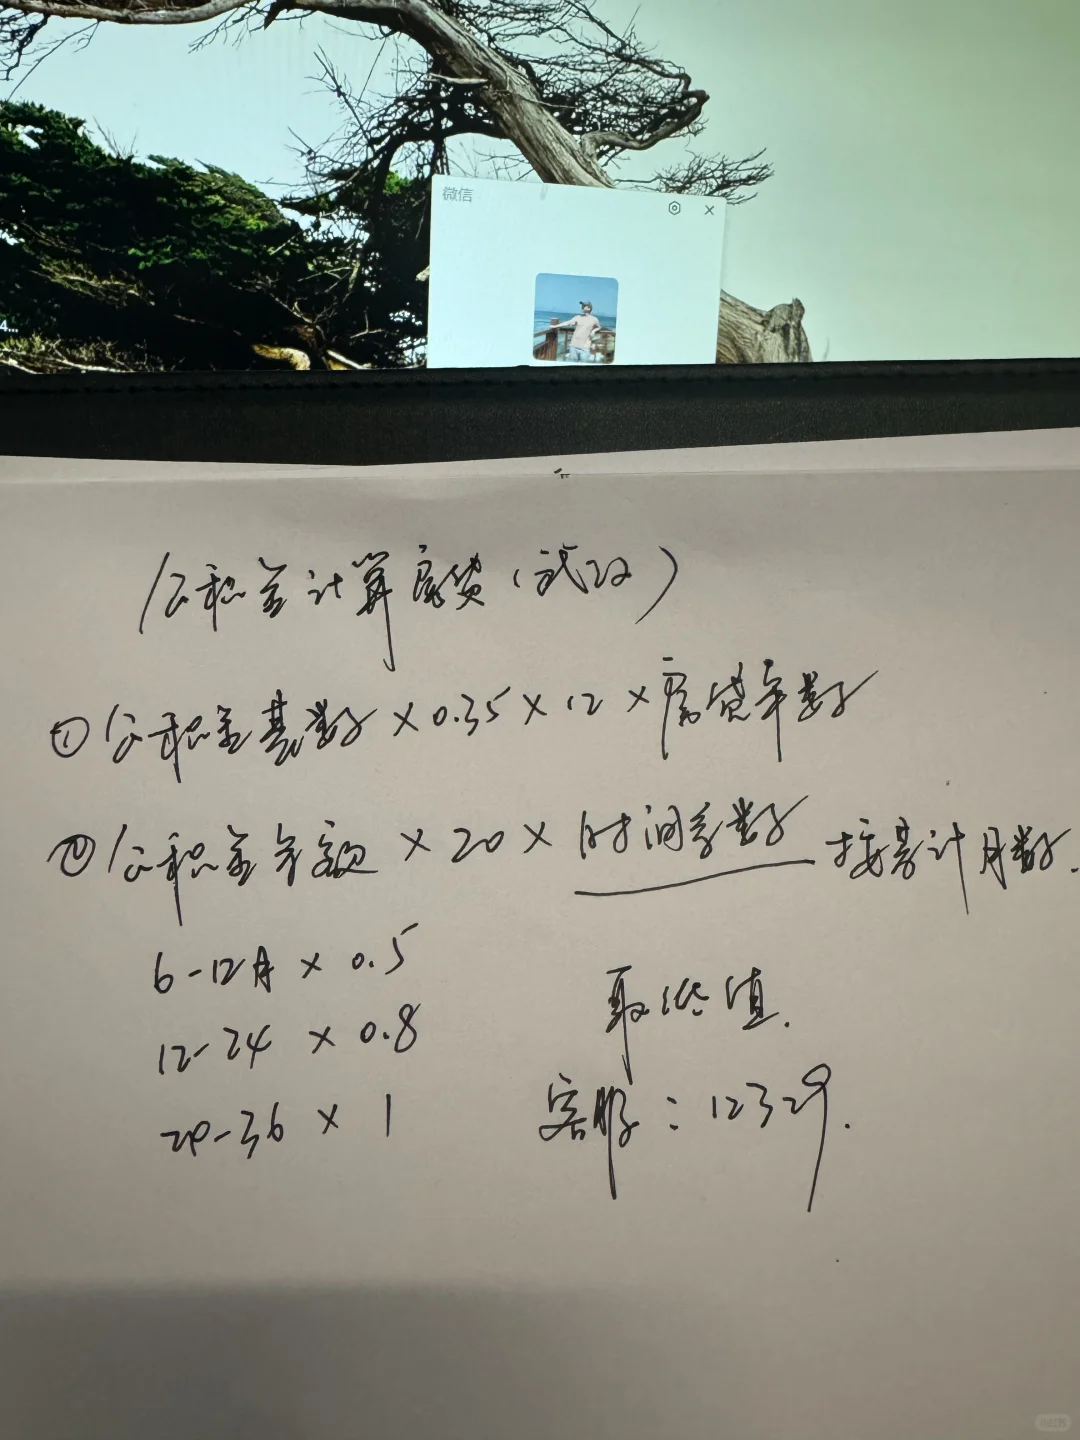 微信
公积金计算房贷（武汉）
①公积金基数×0.35×12×房贷年数
②公积金余额×20×时间系数 按累计月数.
6-12月×0.5
12-24×0.8
24-36×1
取低值.
客服：12329.
小红书